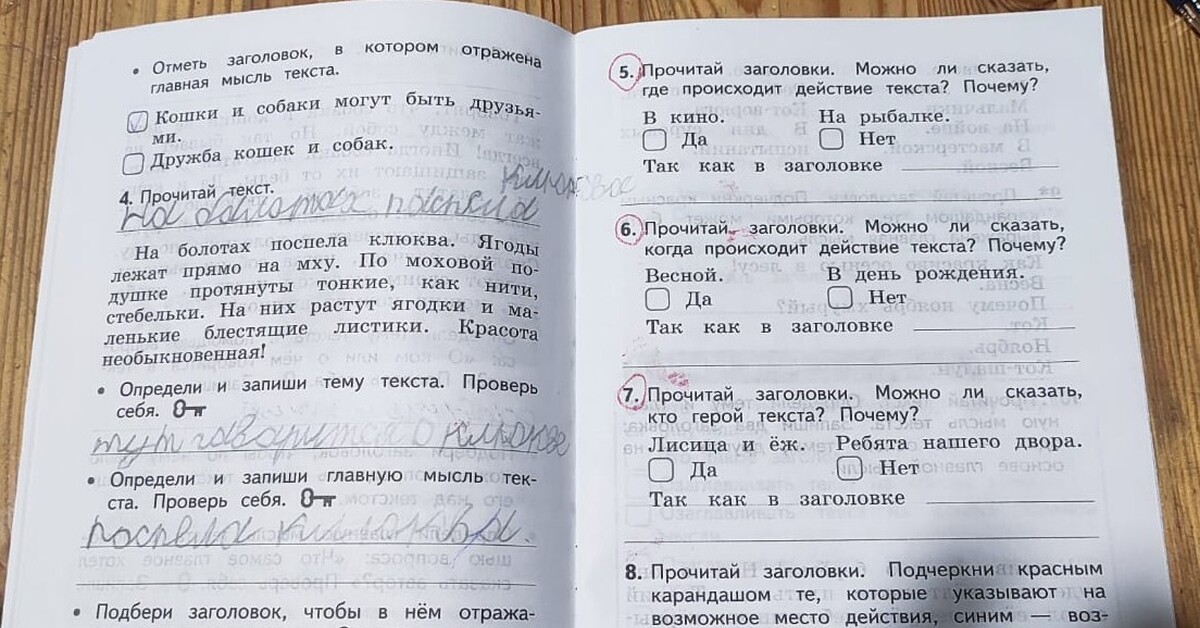 • Отметь заголовок, в котором отражена
главная мысль текста.
Кошки и собаки могут быть друзья-
ми.
Дружба кошек и собак.
4. Прочитай текст.
На болотах поспела
На болотах поспела клюква. Ягоды
лежат прямо на мху. По моховой по-
душке протянуты тонкие, как нити,
стебельки. На них растут ягодки и ма-
ленькие блестящие листики. Красота
необыкновенная!
• Определи и запиши тему текста. Проверь
себя.
тут говорится о клюкве
• Определи и запиши главную мысль тек-
ста. Проверь себя.
поспела
• Подбери заголовок, чтобы в нём отража-
5. Прочитай заголовки. Можно ли сказать,
где происходит действие текста? Почему?
В кино. На рыбалке.
Да Нет
Так как в заголовке
6. Прочитай заголовки. Можно ли сказать,
когда происходит действие текста? Почему?
Весной. В день рождения.
Да Нет
Так как в заголовке
7. Прочитай заголовки. Можно ли сказать,
кто герой текста? Почему?
Лисица и ёж. Ребята нашего двора.
Да Нет
Так как в заголовке
8. Прочитай заголовки. Подчеркни красным
карандашом те, которые указывают на
возможное место действия, синим — воз-